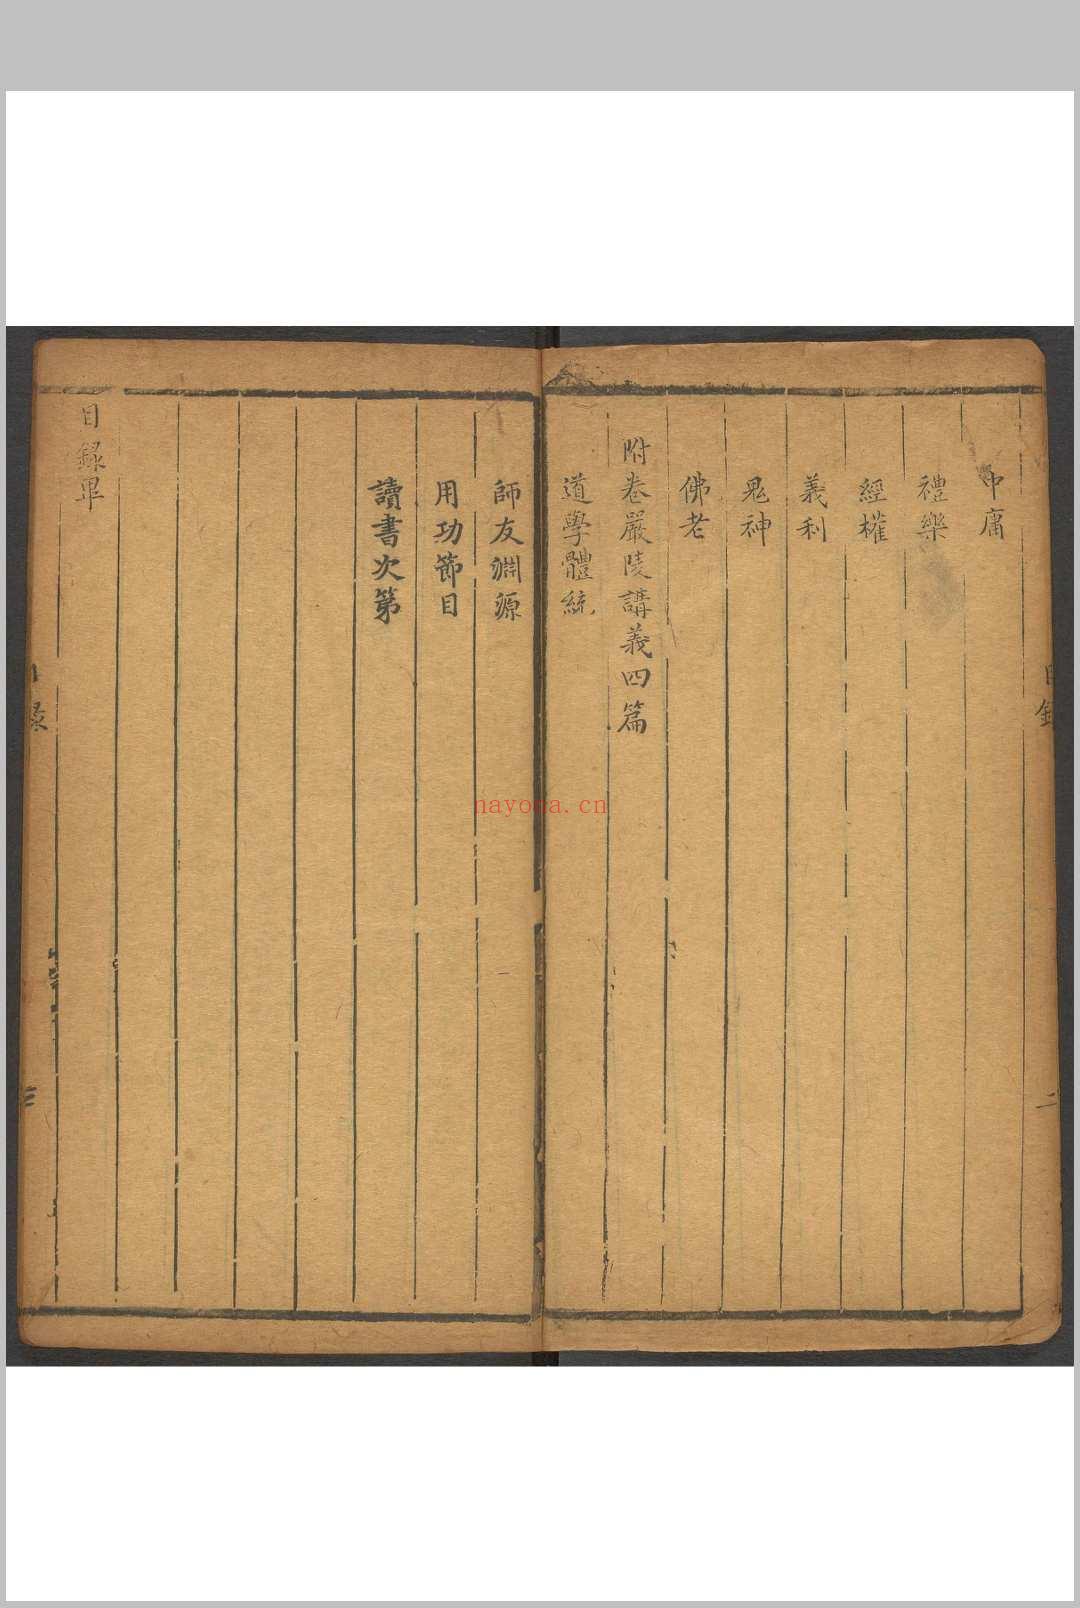 中庸
禮樂
經權
義利
鬼神
佛老
附卷嚴陵講義四篇
道學體統
師友淵源
用功節目
讀書次第
目錄畢
目錄
二
nayona.cn